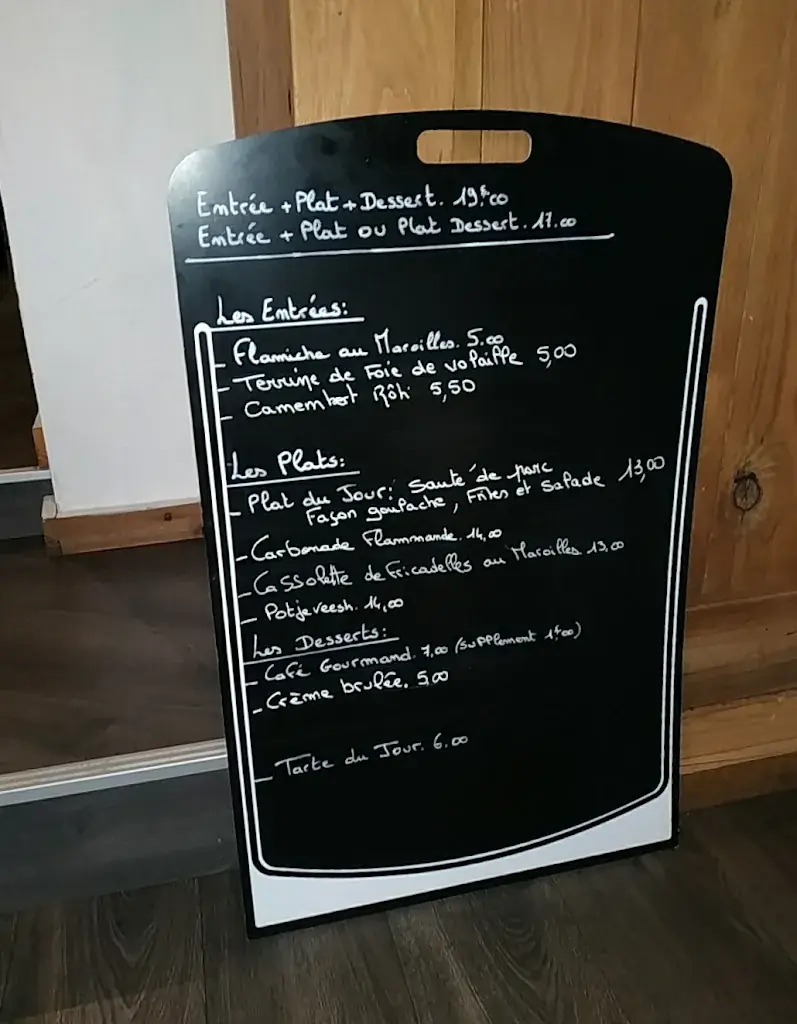 Entrée + Plat + Dessert. 19€00
Entrée + Plat ou Plat Dessert. 17.00
Les Entrées:
- Flamiche au Maroilles. 5.00
- Terrine de Foie de volaille 5,00
- Camembert Rôti 5,50
Les Plats:
- Plat du Jour: Sauté de porc
Façon goulache, Frites et Salade 13,00
- Carbonade Flammande. 14,00
- Cassolette de Fricadelles au Maroilles. 13,00
- Potjeveesh. 14,00
Les Desserts:
- Café Gourmand. 7,00 (supplément 1€00)
- Crème brulée. 5,00
- Tarte du Jour. 6.00